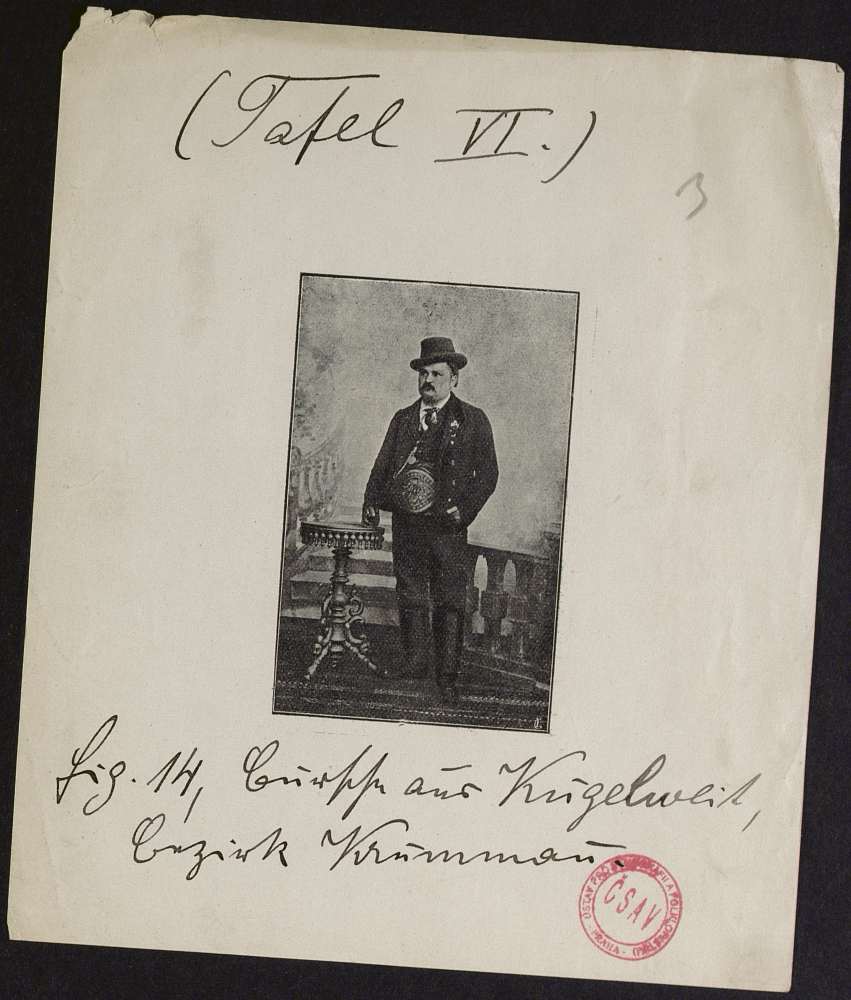 (Tafel VI.)
3
Fig. 14, Bursche aus Kugelweit,
Bezirk Krummau.
ÚSTAV PRO ETNOGRAFII A FOLKLORISTIKU
ČSAV
PRAHA